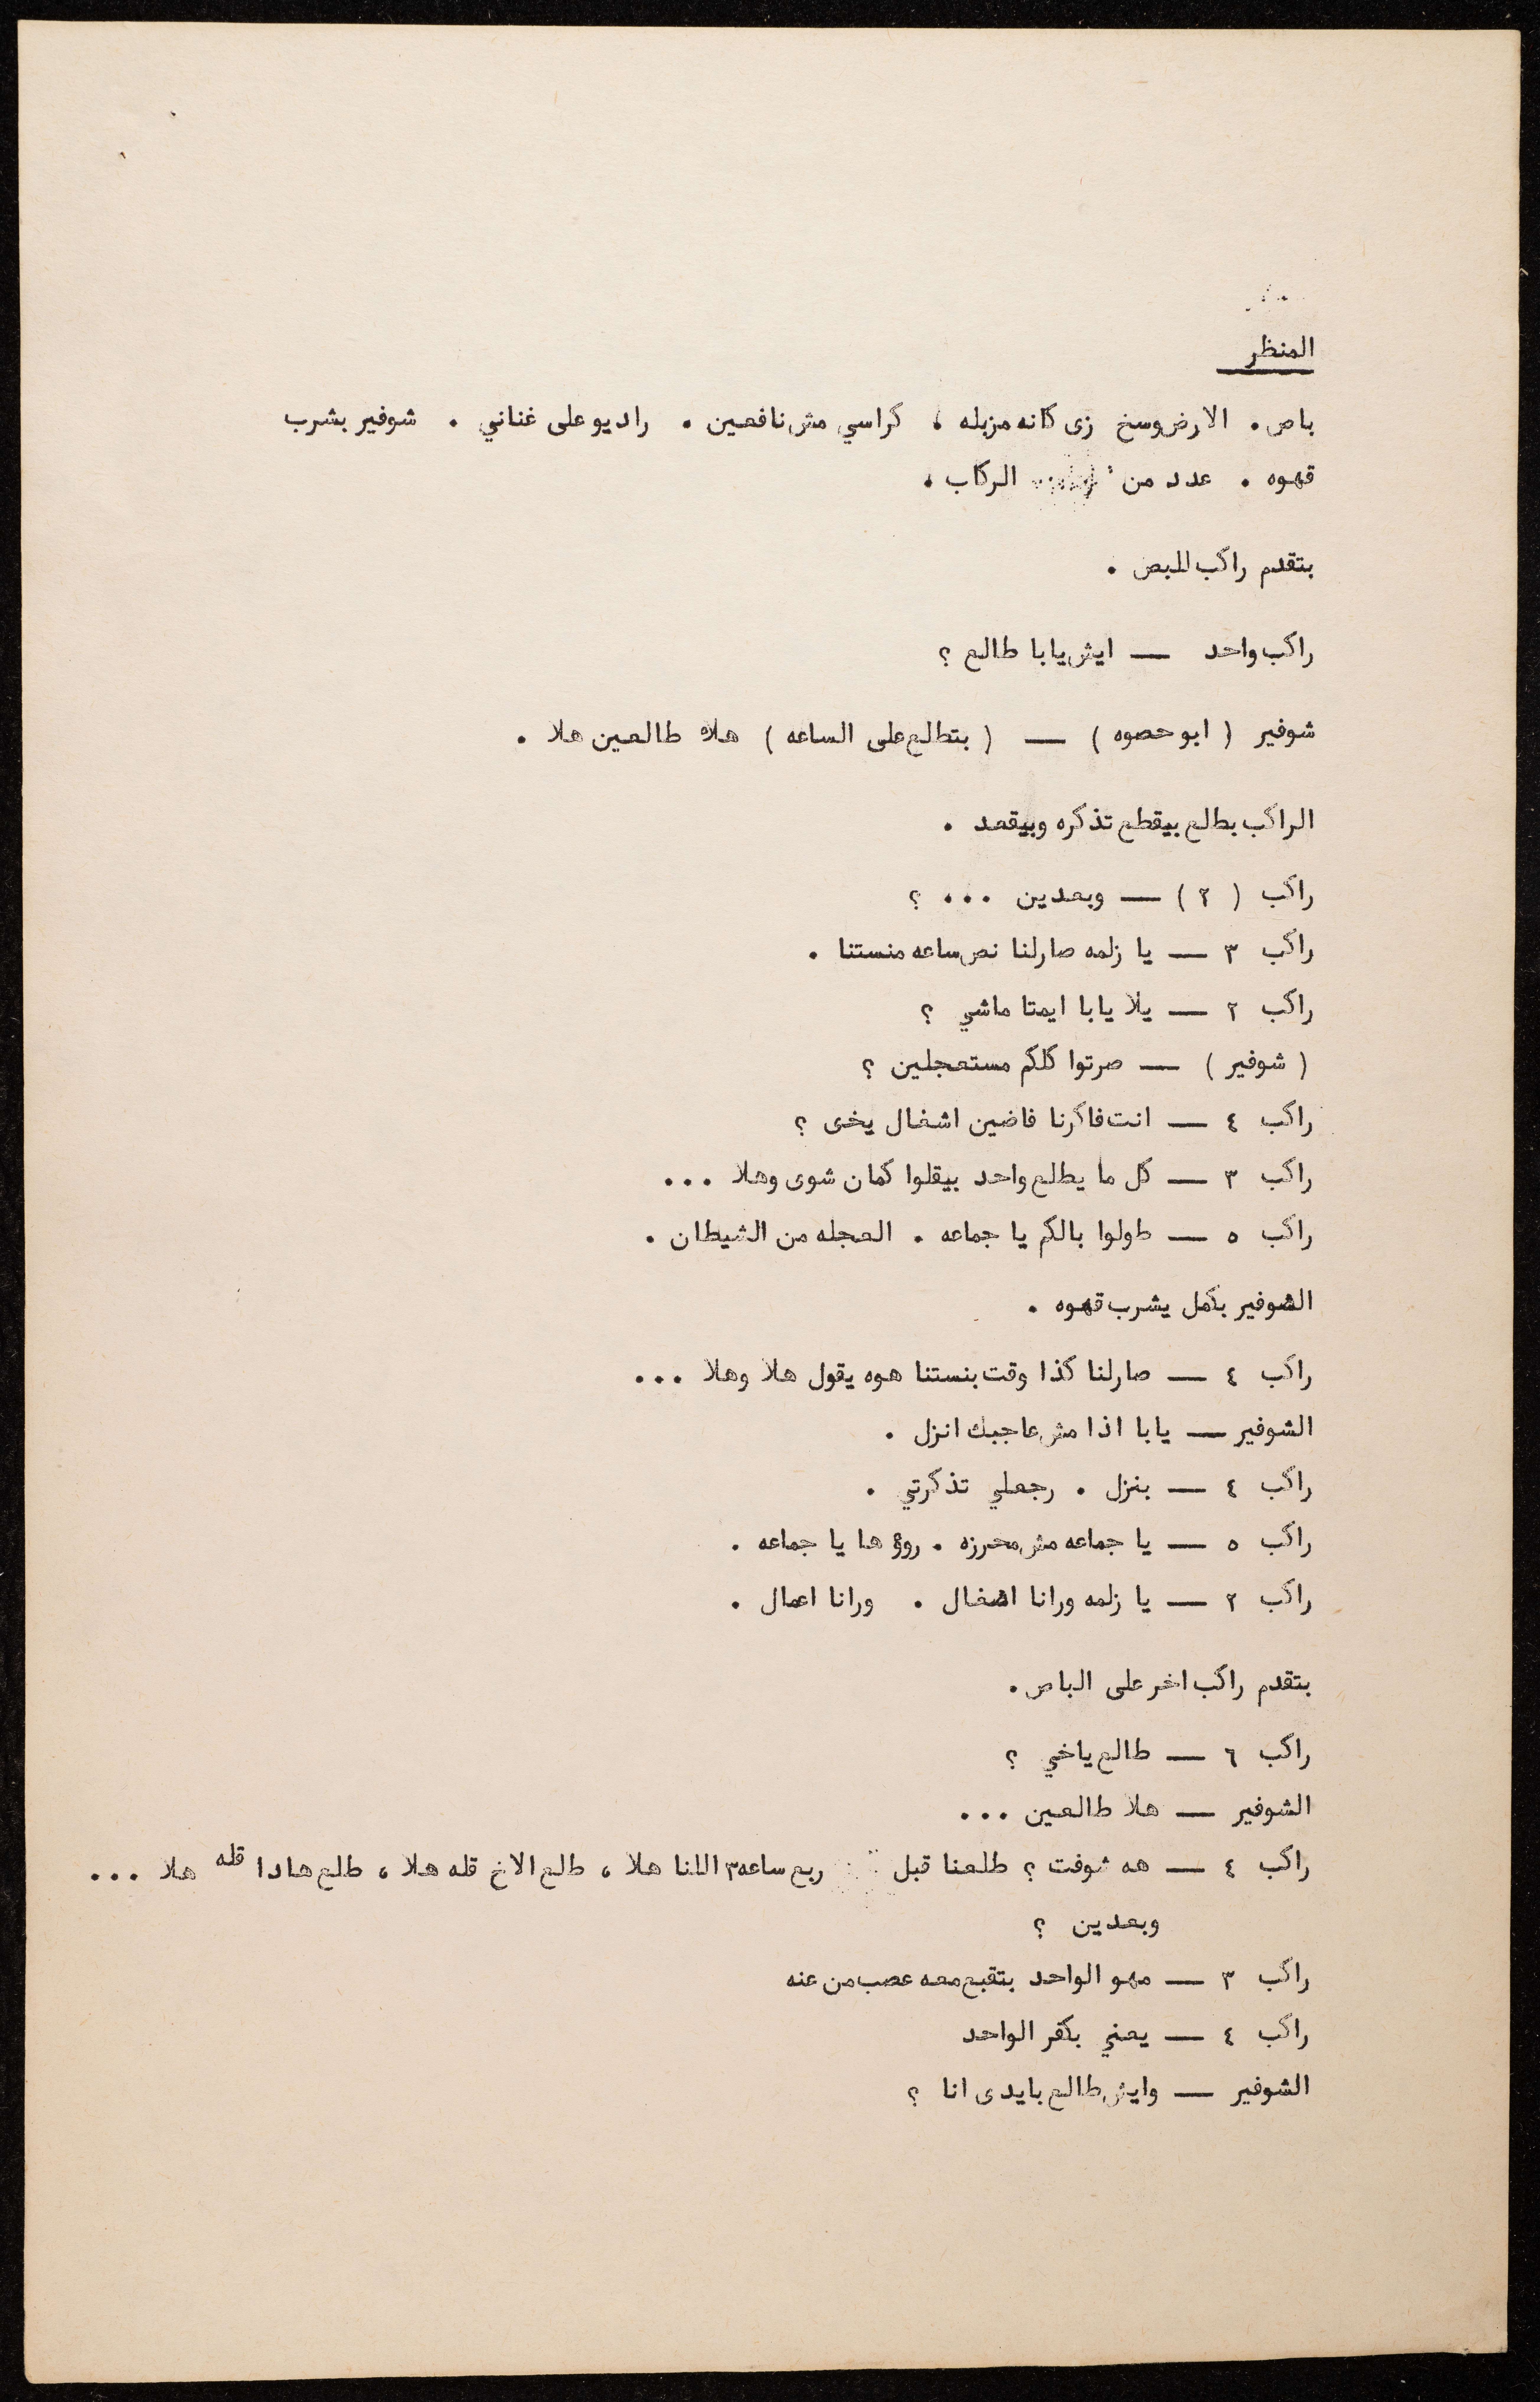 المنظر
باص. الارض وسخ زى كانه مزبله ، كراسي مش نافعين . راديو على غناني . شوفير بشرب
قهوه . عدد من الركاب .
بتقدم راكب للبص .
راكب واحد — ايش يابا طالع ؟
شوفير ( ابو حصوه ) — ( بتطلع على الساعه ) هلاه طالعين هلا .
الراكب بطلع بيقطع تذكره وبيقعد .
راكب ( ٢ ) — وبعدين ... ؟
راكب ٣ — يا زلمه صارلنا نص ساعه منستنا .
راكب ٢ — يلا يابا ايمتا ماشي ؟
( شوفير ) — صرتوا كلكم مستعجلين ؟
راكب ٤ — انت فاكرنا فاضين اشغال يخى ؟
راكب ٣ — كل ما يطلع واحد بيقلوا كمان شوى وهلا ...
راكب ٥ — طولوا بالكم يا جماعه . العجله من الشيطان .
الشوفير بكمل يشرب قهوه .
راكب ٤ — صارلنا كذا وقت بنستنا هوه يقول هلا وهلا ...
الشوفير — يابا اذا مش عاجبك انزل .
راكب ٤ — بنزل . رجعلي تذكرتي .
راكب ٥ — يا جماعه مش محرزه . روؤها يا جماعه .
راكب ٢ — يا زلمه ورانا اشغال . ورانا اعمال .
بتقدم راكب اخر على الباص.
راكب ٦ — طالع ياخي ؟
الشوفير — هلا طالعين ...
راكب ٤ — هه شوفت ؟ طلعنا قبل ربع ساعه٣ اللنا هلا ، طلع الاخ قله هلا ، طلع هادا قله هلا ...
وبعدين ؟
راكب ٣ — مهو الواحد بتقبع معه عصب من عنه
راكب ٤ — يعني بكفر الواحد
الشوفير — وايش طالع بايدى انا ؟